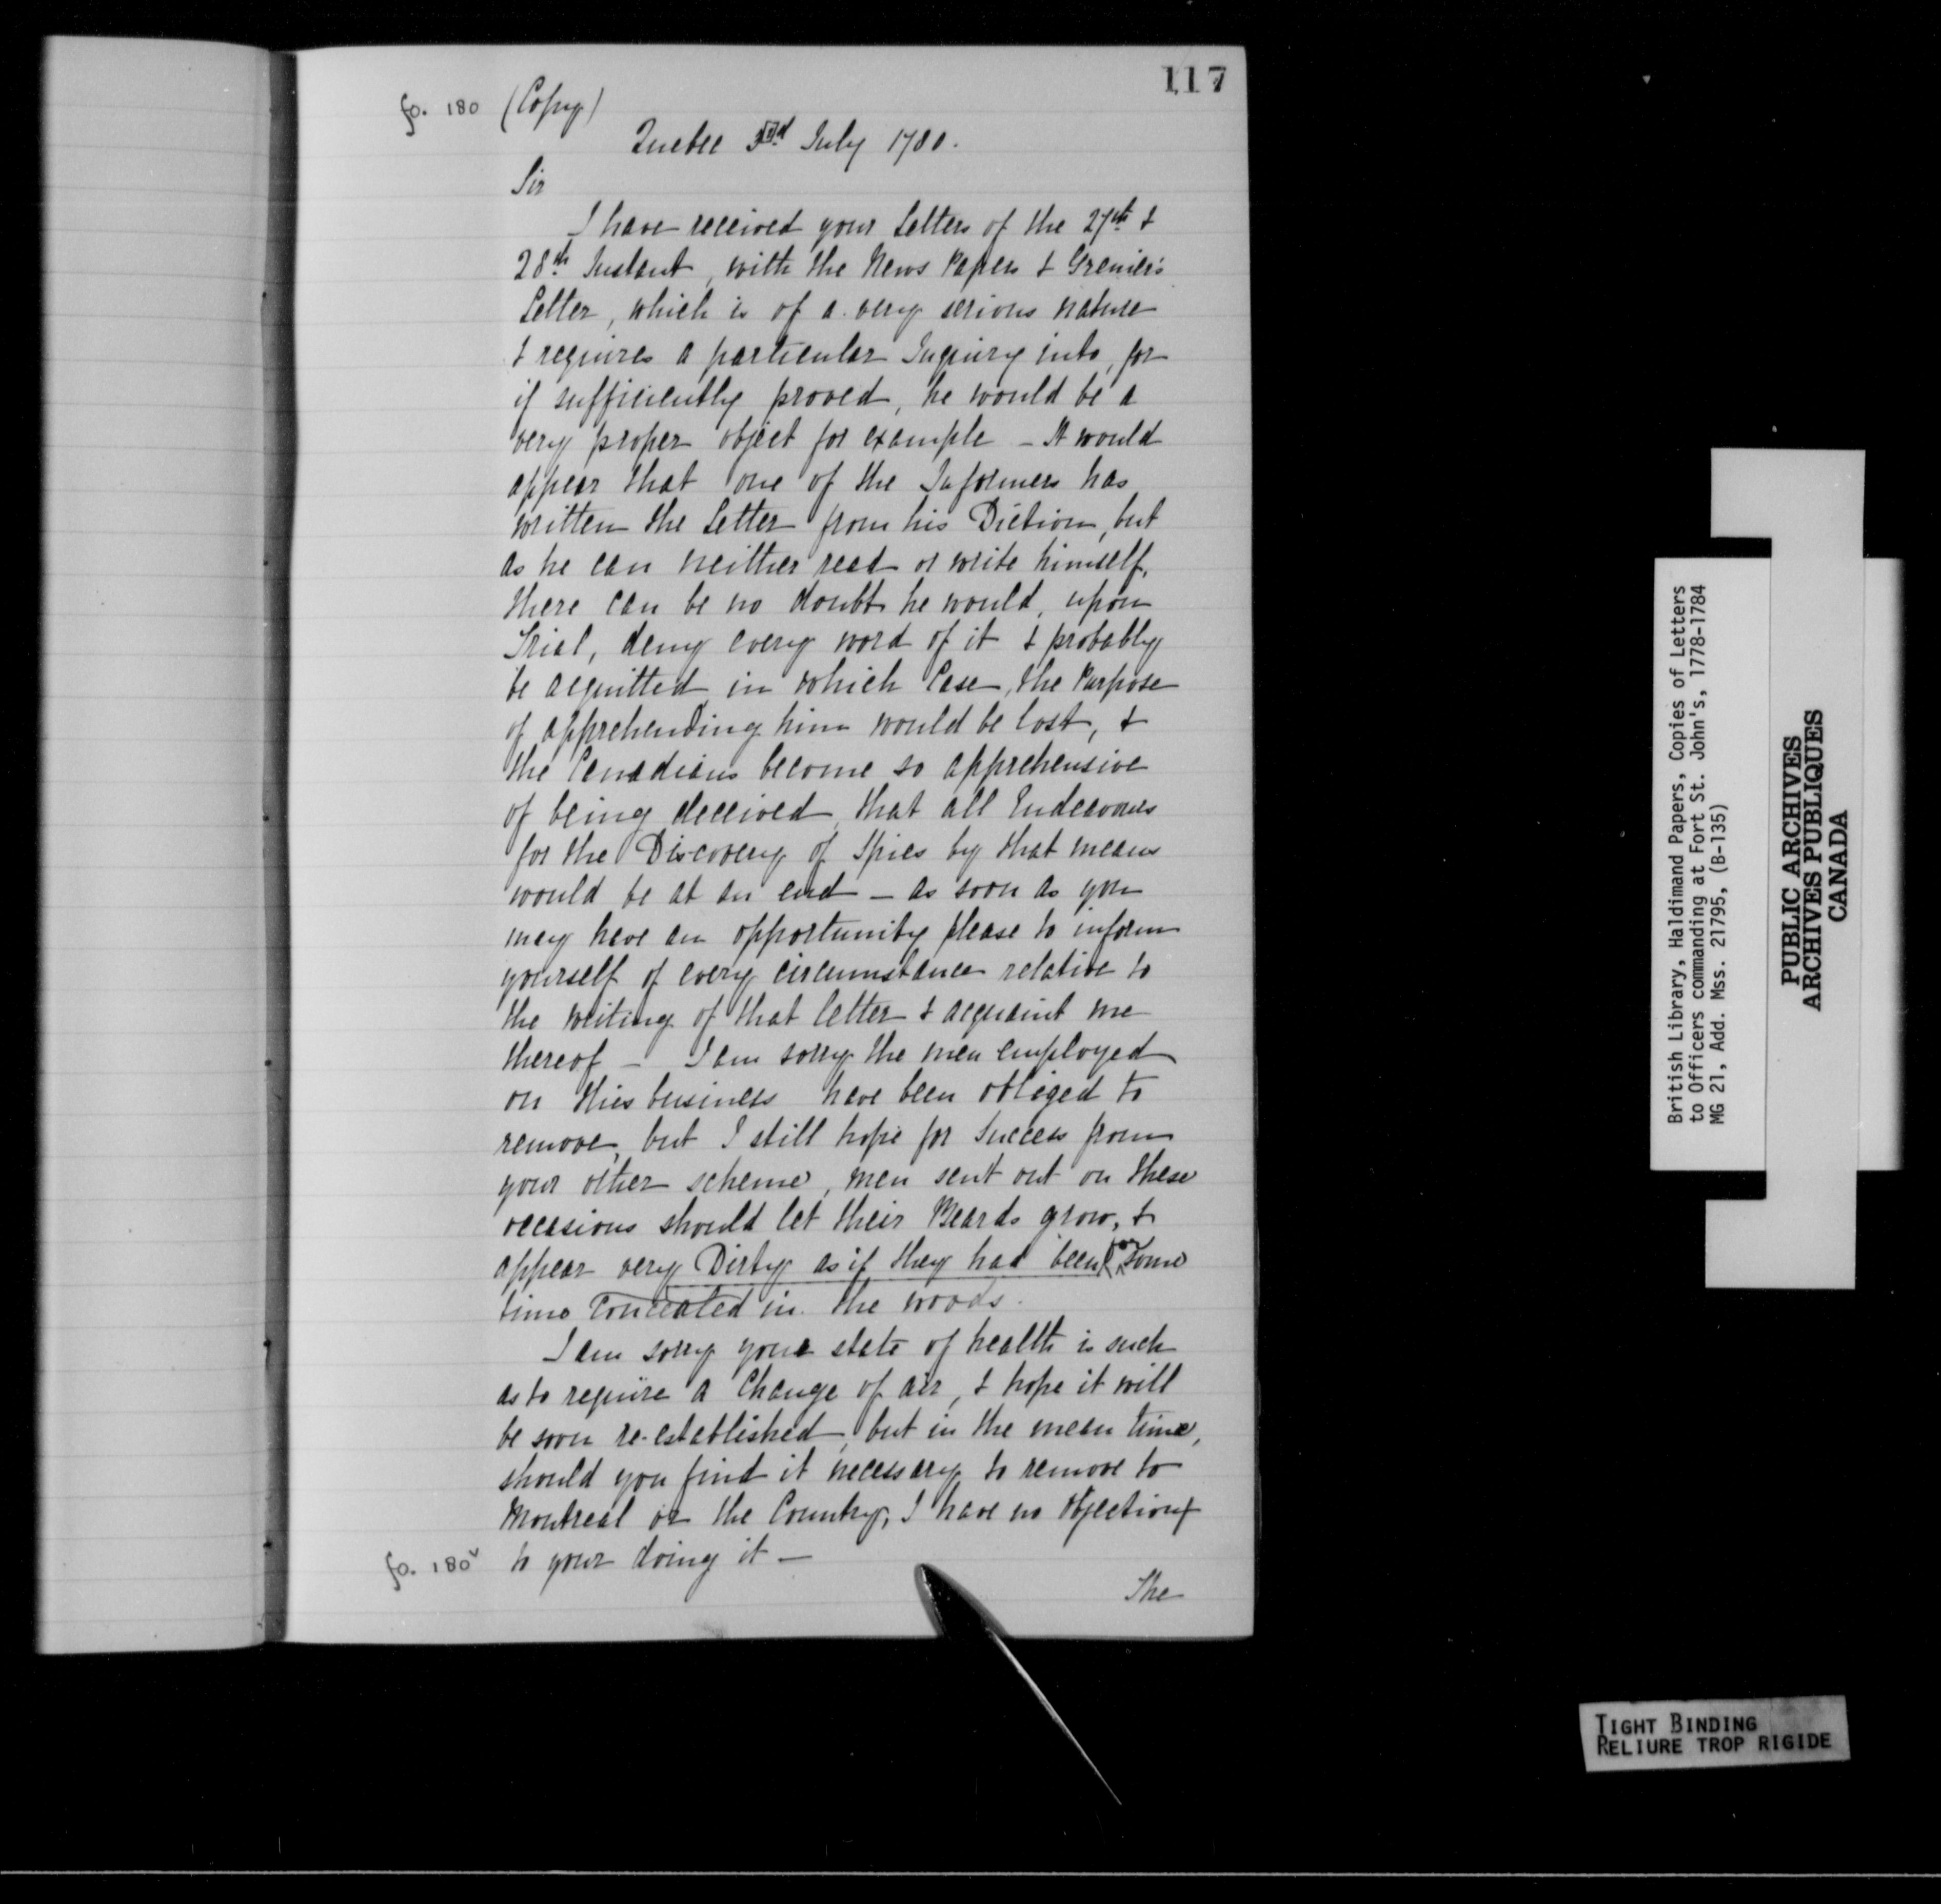 117
fo. 180 (Copy)
Quebec 3rd July 1780.
Sir
I have received your Letters of the 27th &
28th Instant, with the News Papers & Grenier's
Letter, which is of a very serious nature
& requires a particular Inquiry into, for
if sufficiently proved, he would be a
very proper object for example - It would
appear that one of the Informers has
written the Letter from his Diction, but
as he can neither read or write himself,
there can be no doubt he would, upon
Trial, deny every word of it & probably
be acquitted in which Case, the Purpose
of apprehending him would be lost, &
the Canadians become so apprehensive
of being deceived, that all Endeavours
for the Discovery of Spies by that means
would be at an end - as soon as you
may have an opportunity please to inform
yourself of every circumstance relative to
the writing of that letter & acquaint me
thereof - I am sorry the men employed
on this business have been obliged to
remove, but I still hope for Success from
your other scheme, men sent out on these
occasions should let their Beards grow, &
appear very Dirty as if they had been for some
time concealed in the woods.
I am sorry your state of health is such
as to require a Change of air, & hope it will
be soon re-established, but in the mean time,
should you find it necessary to remove to
Montreal or the Country, I have no objection
fo. 180v to your doing it -
The
British Library, Haldimand Papers, Copies of Letters
to Officers commanding at Fort St. John's, 1778-1784
MG 21, Add. Mss. 21795, (B-135)
PUBLIC ARCHIVES
ARCHIVES PUBLIQUES
CANADA
TIGHT BINDING
RELIURE TROP RIGIDE